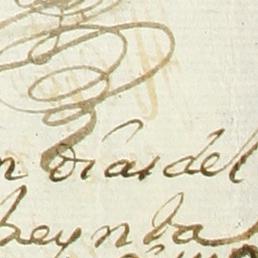 n dias del
heynta